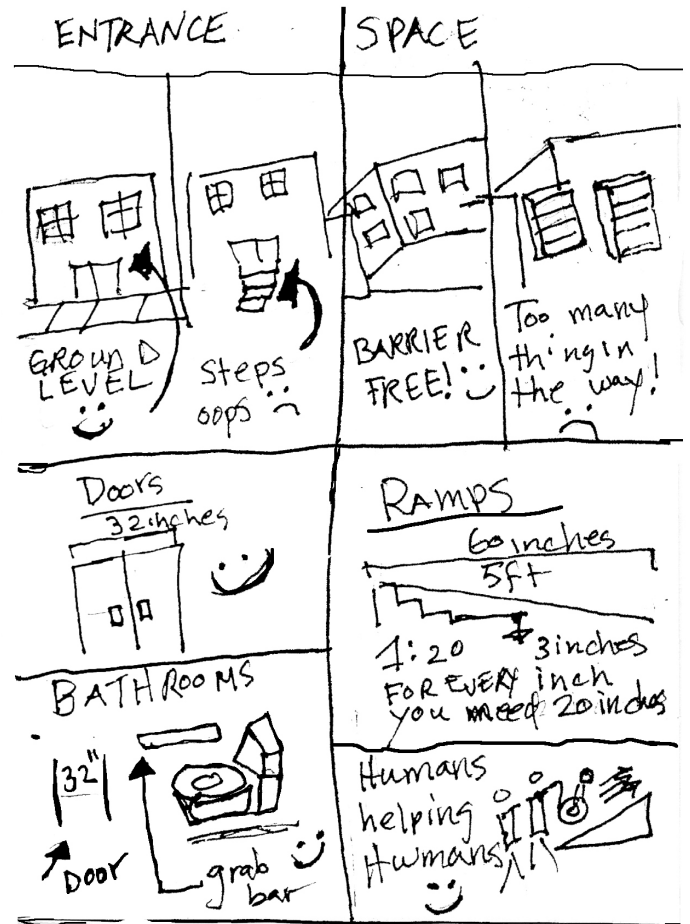 ENTRANCE
SPACE
GROUND
LEVEL
steps
oops
BARRIER
FREE!
Too many
thing in
the way!
Doors
32 inches
RAMPS
60 inches
5ft
1:20
3 inches
FOR EVERY inch
you need 20 inches
BATHROOMS
32"
Door
grab
bar
Humans
helping
Humans